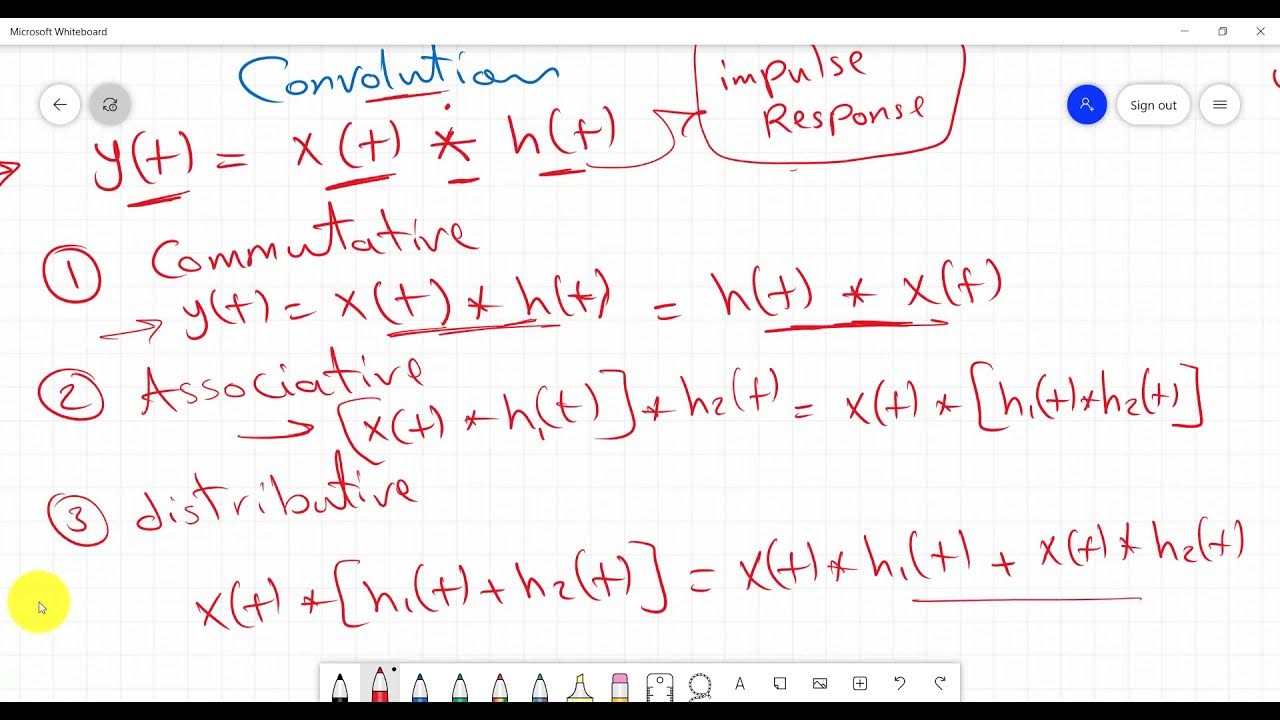 Microsoft Whiteboard
Convolution
impulse
Response
Sign out
y(t) = x(t) * h(t)
1 Commutative
y(t) = x(t) * h(t) = h(t) * x(t)
2 Associative
[x(t) * h₁(t)] * h₂(t) = x(t) * [h₁(t) * h₂(t)]
3 distributive
x(t) * [h₁(t) + h₂(t)] = x(t) * h₁(t) + x(t) * h₂(t)
A